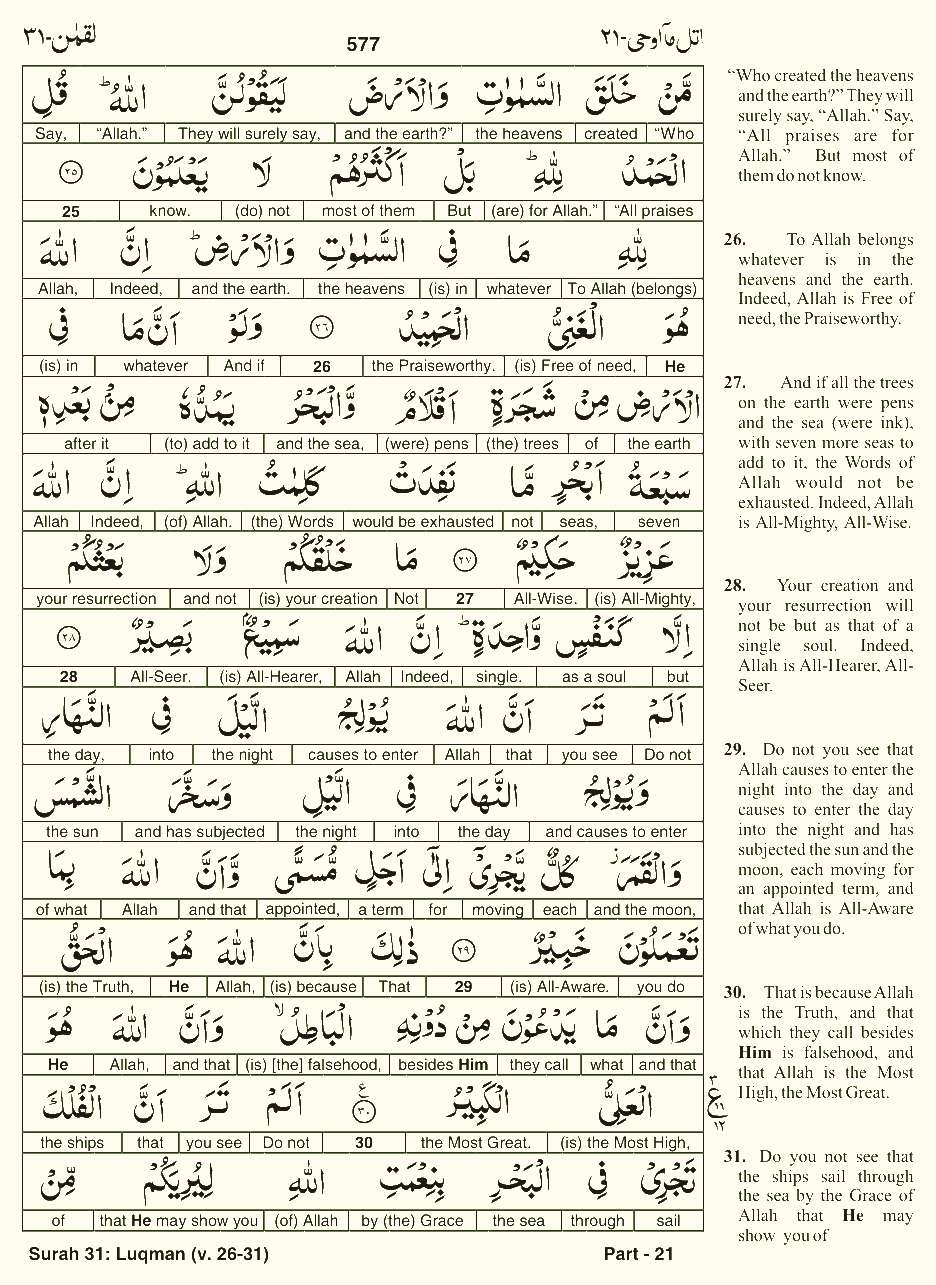 لقمٰن-٣١ 577 اتل ماۤ اوحی-٢١
مَّنْ خَلَقَ السَّمٰوٰتِ وَالْاَرْضَ لَيَقُوْلُنَّ اللّٰهُ ؕ قُلِ
Say, | “Allah.” | They will surely say, | and the earth?” | the heavens | created | “Who
الْحَمْدُ لِلّٰهِ ؕ بَلْ اَكْثَرُهُمْ لَا يَعْلَمُوْنَ ٢٥
25 | know. | (do) not | most of them | But | (are) for Allah.” | “All praises
لِلّٰهِ مَا فِي السَّمٰوٰتِ وَالْاَرْضِ ؕ اِنَّ اللّٰهَ
Allah, | Indeed, | and the earth. | the heavens | (is) in | whatever | To Allah (belongs)
هُوَ الْغَنِيُّ الْحَمِيْدُ ٢٦ وَلَوْ اَنَّ مَا فِي
(is) in | whatever | And if | 26 | the Praiseworthy. | (is) Free of need, | He
الْاَرْضِ مِنْ شَجَرَةٍ اَقْلَامٌ وَّالْبَحْرُ يَمُدُّهٗ مِنْۢ بَعْدِهٖ
after it | (to) add to it | and the sea, | (were) pens | (the) trees | of | the earth
سَبْعَةُ اَبْحُرٍ مَّا نَفِدَتْ كَلِمٰتُ اللّٰهِ ؕ اِنَّ اللّٰهَ
Allah | Indeed, | (of) Allah. | (the) Words | would be exhausted | not | seas, | seven
عَزِيْزٌ حَكِيْمٌ ٢٧ مَا خَلْقُكُمْ وَلَا بَعْثُكُمْ
your resurrection | and not | (is) your creation | Not | 27 | All-Wise. | (is) All-Mighty,
اِلَّا كَنَفْسٍ وَّاحِدَةٍ ؕ اِنَّ اللّٰهَ سَمِيْعٌۢ بَصِيْرٌ ٢٨
28 | All-Seer. | (is) All-Hearer, | Allah | Indeed, | single. | as a soul | but
اَلَمْ تَرَ اَنَّ اللّٰهَ يُوْلِجُ الَّيْلَ فِي النَّهَارِ
the day, | into | the night | causes to enter | Allah | that | you see | Do not
وَيُوْلِجُ النَّهَارَ فِي الَّيْلِ وَسَخَّرَ الشَّمْسَ
the sun | and has subjected | the night | into | the day | and causes to enter
وَالْقَمَرَ ؗ كُلٌّ يَّجْرِيْۤ اِلٰۤى اَجَلٍ مُّسَمًّى وَّاَنَّ اللّٰهَ بِمَا
of what | Allah | and that | appointed, | a term | for | moving | each | and the moon,
تَعْمَلُوْنَ خَبِيْرٌ ٢٩ ذٰلِكَ بِاَنَّ اللّٰهَ هُوَ الْحَقُّ
(is) the Truth, | He | Allah, | (is) because | That | 29 | (is) All-Aware. | you do
وَاَنَّ مَا يَدْعُوْنَ مِنْ دُوْنِهِ الْبَاطِلُ ۙ وَاَنَّ اللّٰهَ هُوَ
He | Allah, | and that | (is) [the] falsehood, | besides Him | they call | what | and that
الْعَلِيُّ الْكَبِيْرُ ٣٠ ع اَلَمْ تَرَ اَنَّ الْفُلْكَ
the ships | that | you see | Do not | 30 | the Most Great. | (is) the Most High,
٣ ع ١١ ١٢
تَجْرِيْ فِي الْبَحْرِ بِنِعْمَتِ اللّٰهِ لِيُرِيَكُمْ مِّنْ
of | that He may show you | (of) Allah | by (the) Grace | the sea | through | sail
Surah 31: Luqman (v. 26-31) Part - 21
“Who created the heavens
and the earth?” They will
surely say, “Allah.” Say,
“All praises are for
Allah.” But most of
them do not know.
26. To Allah belongs
whatever is in the
heavens and the earth.
Indeed, Allah is Free of
need, the Praiseworthy.
27. And if all the trees
on the earth were pens
and the sea (were ink),
with seven more seas to
add to it, the Words of
Allah would not be
exhausted. Indeed, Allah
is All-Mighty, All-Wise.
28. Your creation and
your resurrection will
not be but as that of a
single soul. Indeed,
Allah is All-Hearer, All-
Seer.
29. Do not you see that
Allah causes to enter the
night into the day and
causes to enter the day
into the night and has
subjected the sun and the
moon, each moving for
an appointed term, and
that Allah is All-Aware
of what you do.
30. That is because Allah
is the Truth, and that
which they call besides
Him is falsehood, and
that Allah is the Most
High, the Most Great.
31. Do you not see that
the ships sail through
the sea by the Grace of
Allah that He may
show you of